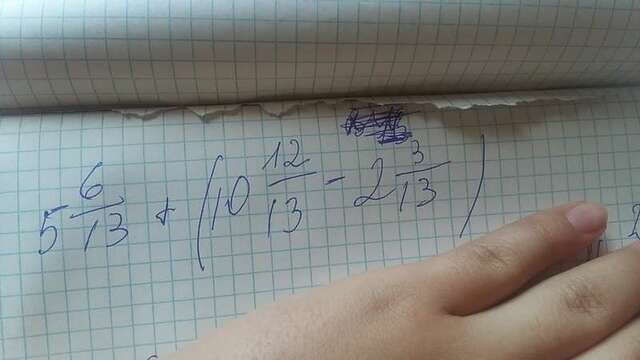 5 6/13 + (10 12/13 - 2 3/13)
2